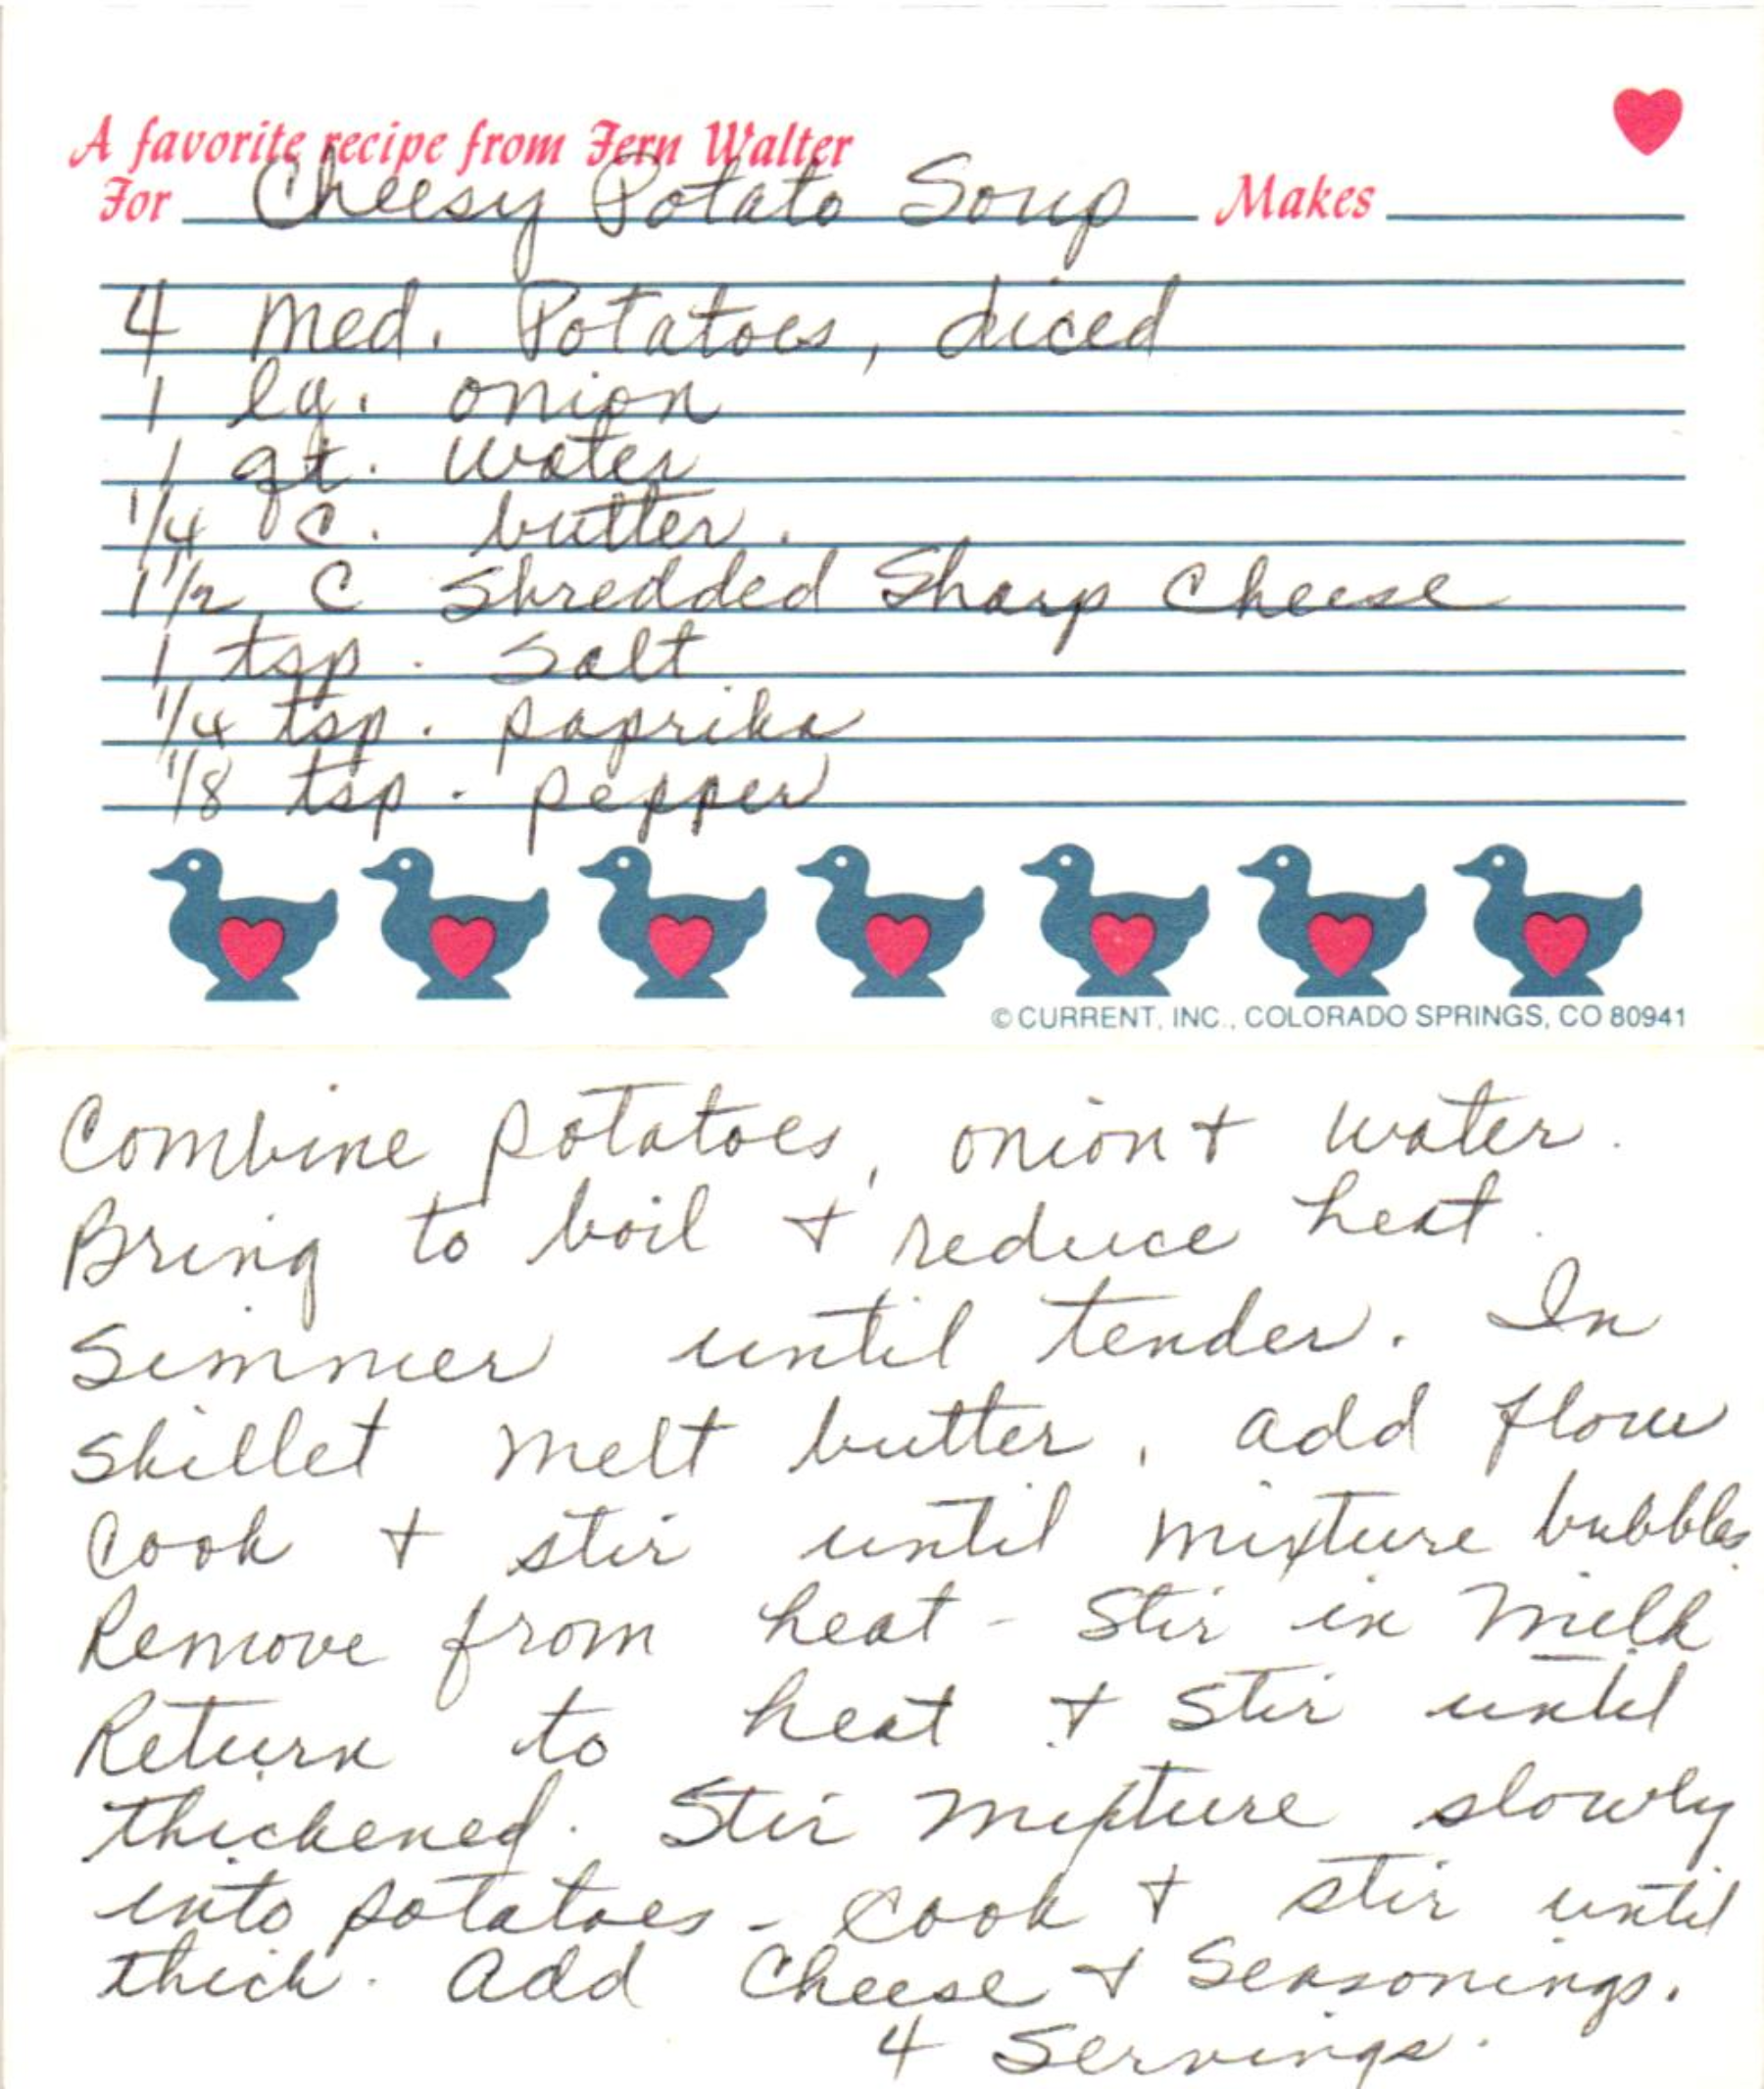 A favorite recipe from Fern Walter
For Cheesy Potato Soup Makes
4 med. Potatoes, diced
1 lg. onion
1 qt. water
1/4 c. butter.
1 1/2 C shredded Sharp Cheese
1 tsp. salt
1/4 tsp. paprika
1/8 tsp. pepper
© CURRENT, INC., COLORADO SPRINGS, CO 80941
Combine potatoes, onion + water.
Bring to boil + reduce heat.
Simmer until tender. In
skillet melt butter, add flour
Cook + stir until mixture bubbles
Remove from heat - Stir in Milk
Return to heat + stir until
thickened. Stir mixture slowly
into potatoes - cook + stir until
thick. Add Cheese + Seasonings.
4 Servings.